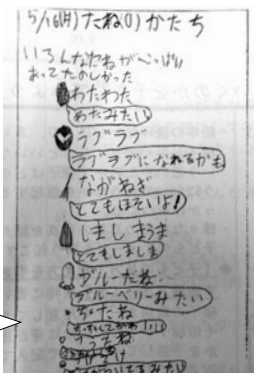 5/16(月)たね(の)かたち
いろんなたねがいっぱい
あってたのしかった
わたわた
わたみたい
ラブラブ
ラブラブになれるかも
ながねぎ
とてもほそいよ!
しましまうま
とてもしましま
ブルーだね
ブルーベリーみたい